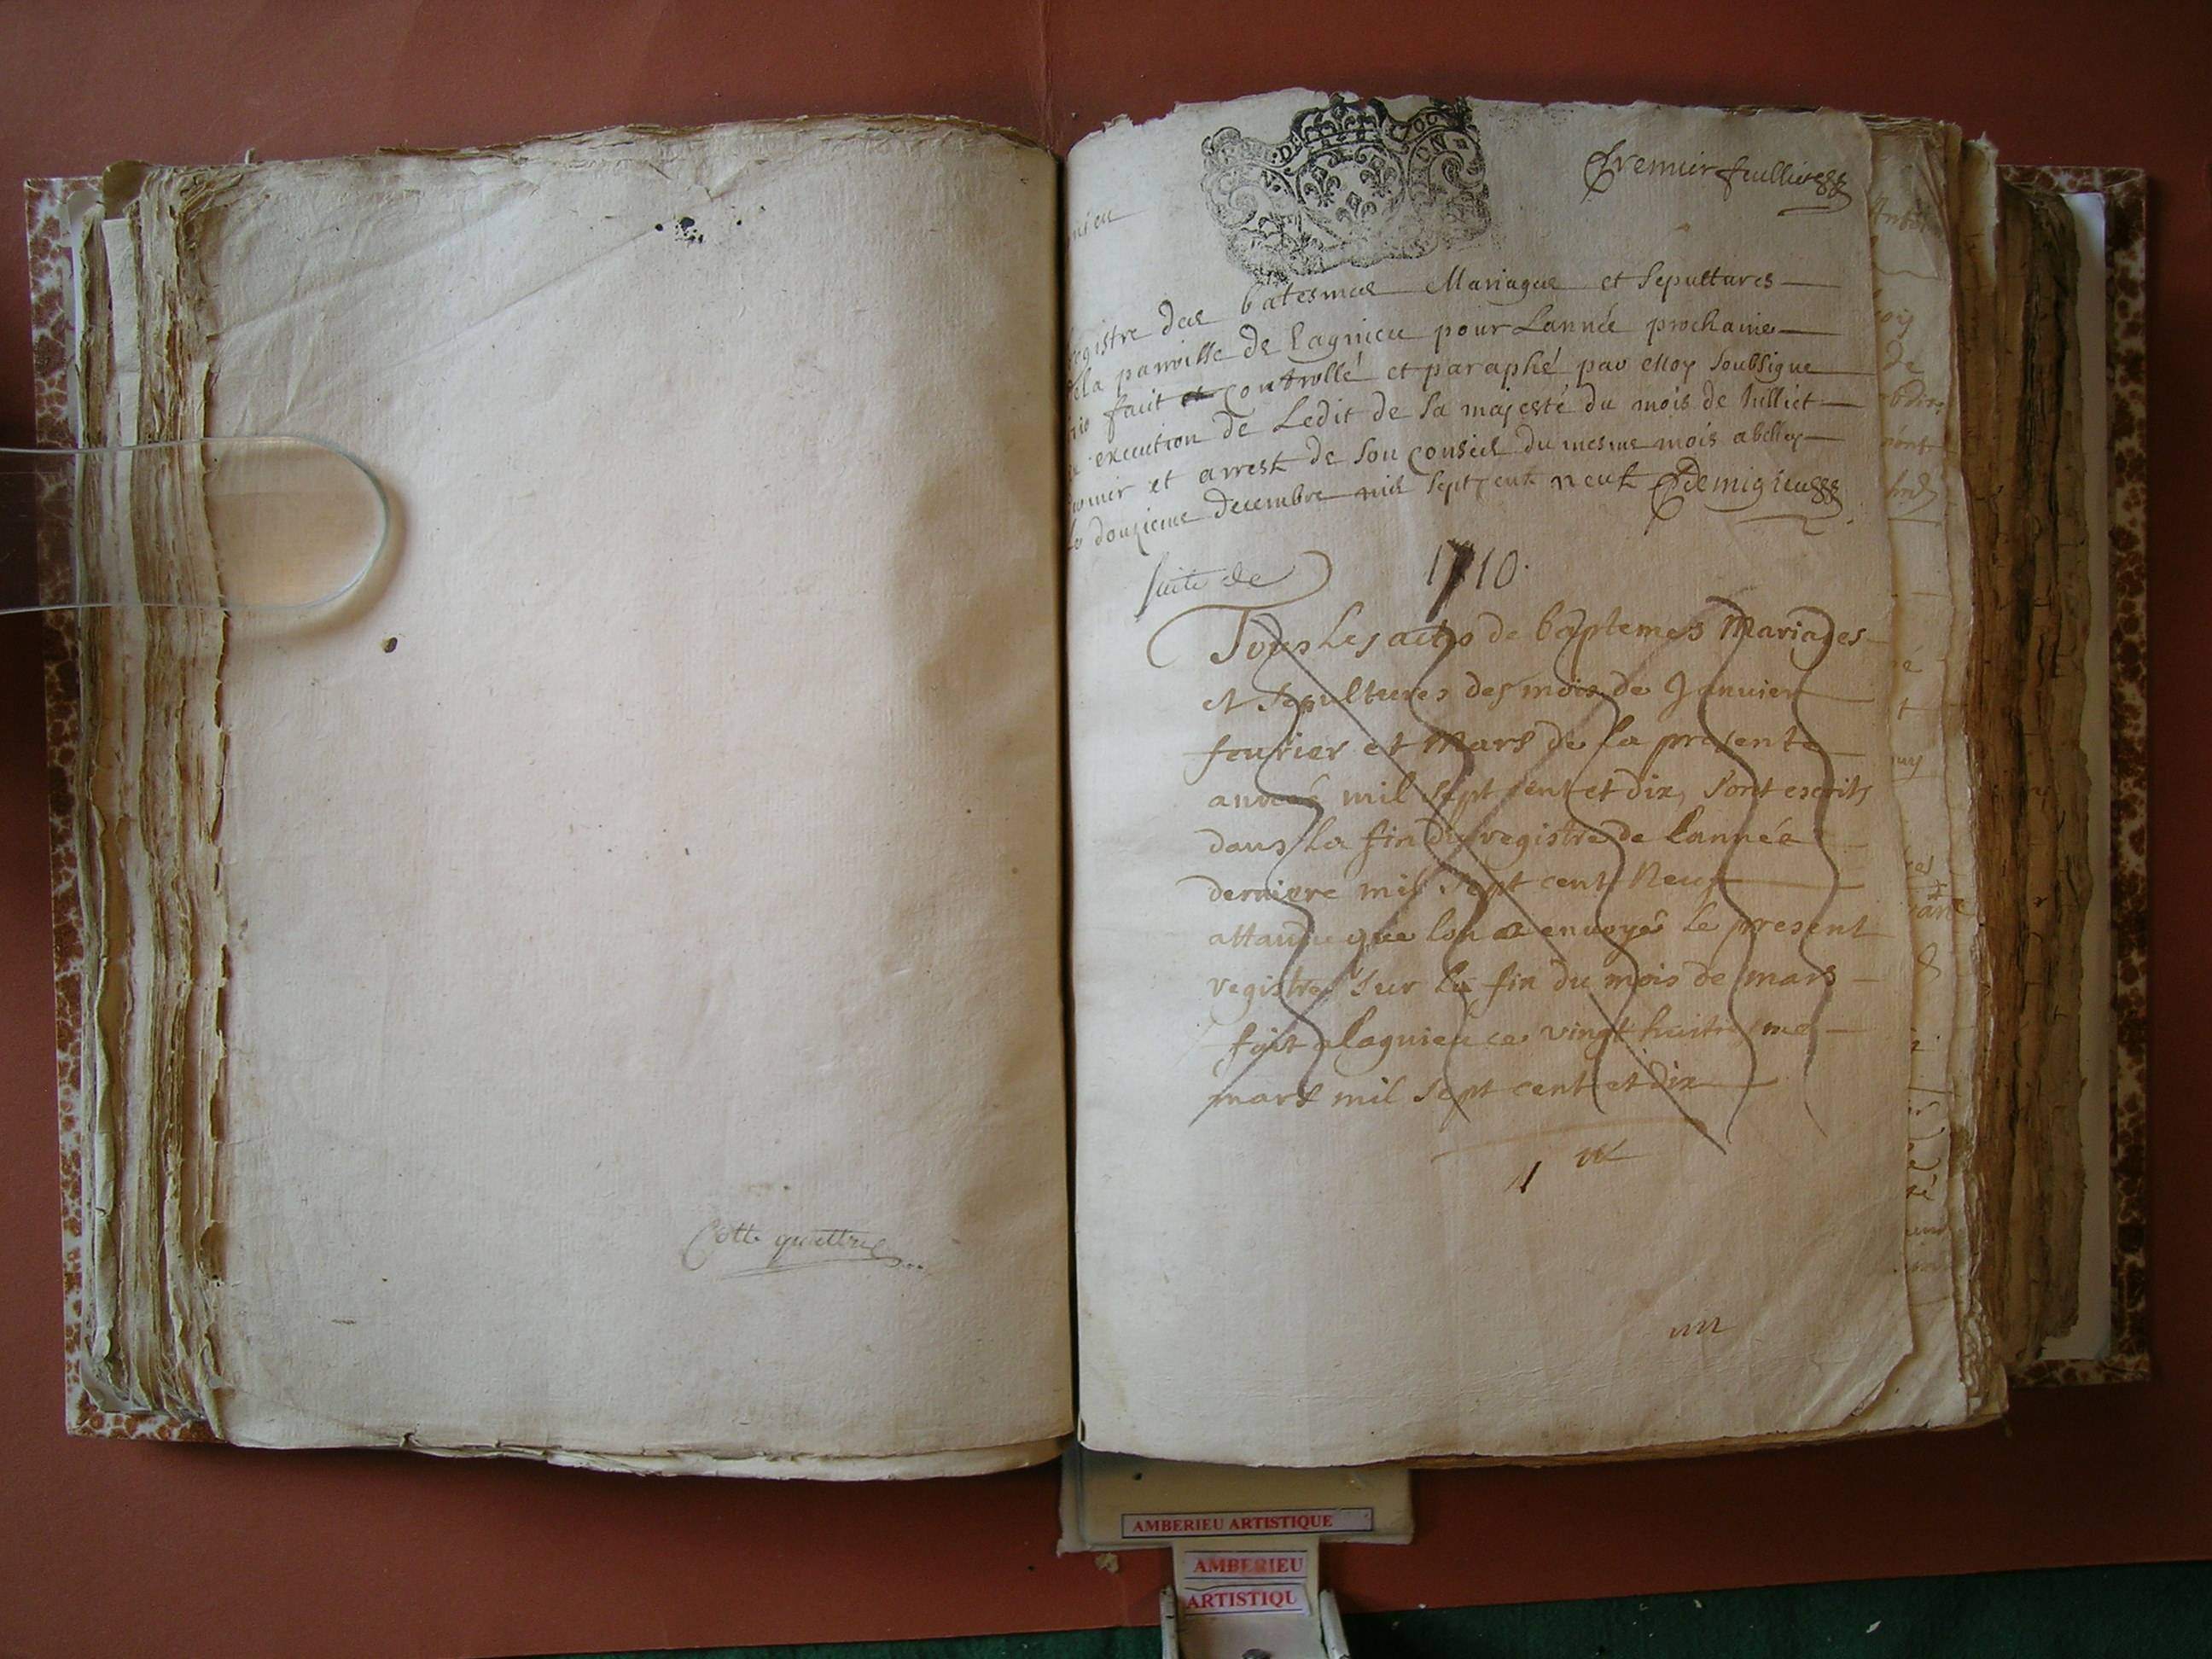 Cotte quattre
Premier feulliet
nieu
Registre des batesmes Mariages et Sepultures
de la parroisse de Lagnieu pour Lannée prochaine
1710 fait et Controllé et paraphé par Moy Soubsigne
en execution de Ledit de Sa majesté du mois de Julliet
dernier et arrest de Son Conseil du mesme mois a belley
Le douzieme decembre mil Sept cent neuf Demigieu
Suite de 1710.
Tous Les actes de baptemes Mariages
et Sepultures des mois de Januier
feurier et Mars de la presente
année mil Sept cent et dix, Sont escrits
dans la fin du registre de Lannée
derniere mil Sept cent Neuf
attandu que lon a envoyé le present
registre Sur la fin du mois de mars
fait a lagnieu ce vingt huitiesme
mars mil Sept cent et dix
AMBERIEU ARTISTIQUE
AMBERIEU
ARTISTIQU